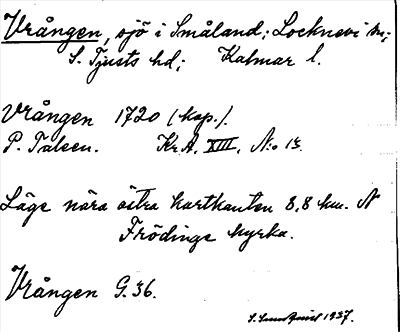 Vrången, sjö i Småland; Locknevi sn;
S. Tjusts hd; Kalmar l.
Vrången 1720 (kop.).
P. Kr.A. XIII, N:o 13.
Läge nära östra kartkanten 8,8 km. N
Frödinge kyrka.
Vrången G. 36.
1937.